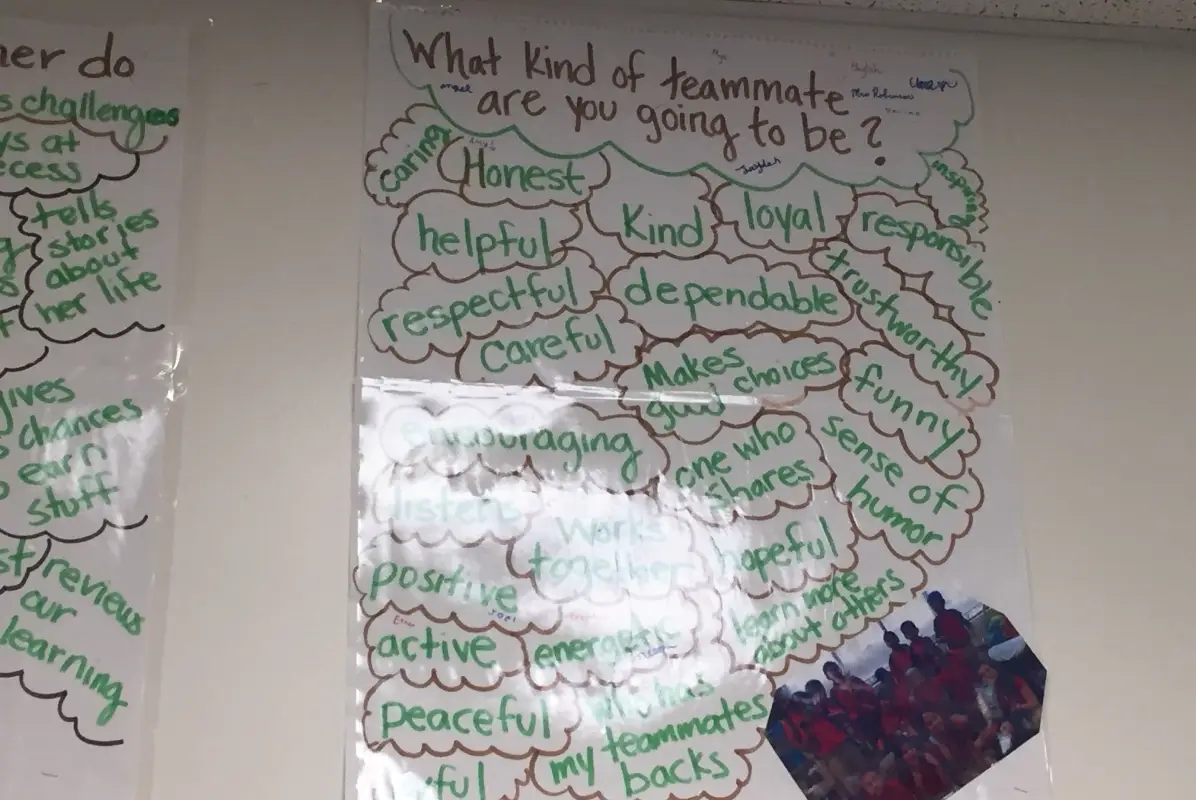 her do
s challenges
ys at
cess
tells
stories
about
her life
gives
chances
earn
stuff
reviews
our
learning
What kind of teammate
are you going to be?
caring
Honest
Kind
loyal
inspiring
helpful
responsible
respectful
dependable
trustworthy
careful
Makes
good choices
funny
encouraging
one who
shares
sense of
humor
listens
works
together
hopeful
positive
learn more
about others
active
energetic
peaceful
who has
my teammates
backs
ful